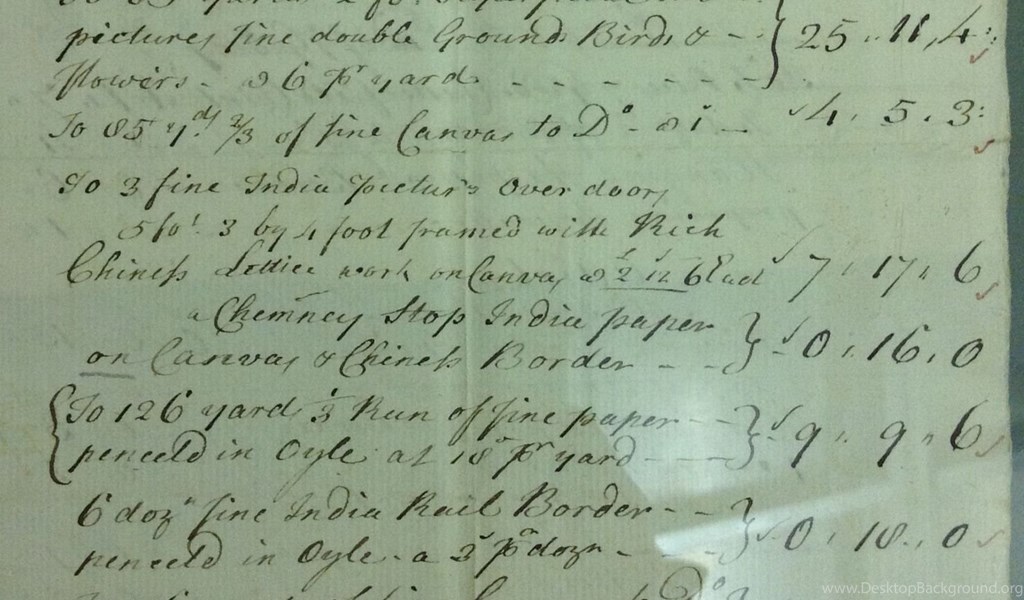 pictures fine double Ground Birds & - - } 25 . 11 . 4
flowers - a 6 pr yard - - - - - -
To 85 yds 2/3 of fine Canvas to Do - a 1 - 4 . 5 . 3
To 3 fine India pictur's over doors
5 fot 3 by 4 foot framed with Rich
Chiness Lettice work on Canvas a 2 12 6 Each 7 . 17 . 6
a Chemney Stop India paper
on Canvas & Chiness Border - - } - 0 . 16 . 0
To 126 yards 1/3 Run of fine paper - -
penceld in Oyle at 18 pr yard - - - } 9 . 9 . 6
6 dozn fine India Rail Border - -
penceld in Oyle - a 3 pr dozn - - - } 0 . 18 . 0
www.DesktopBackground.org